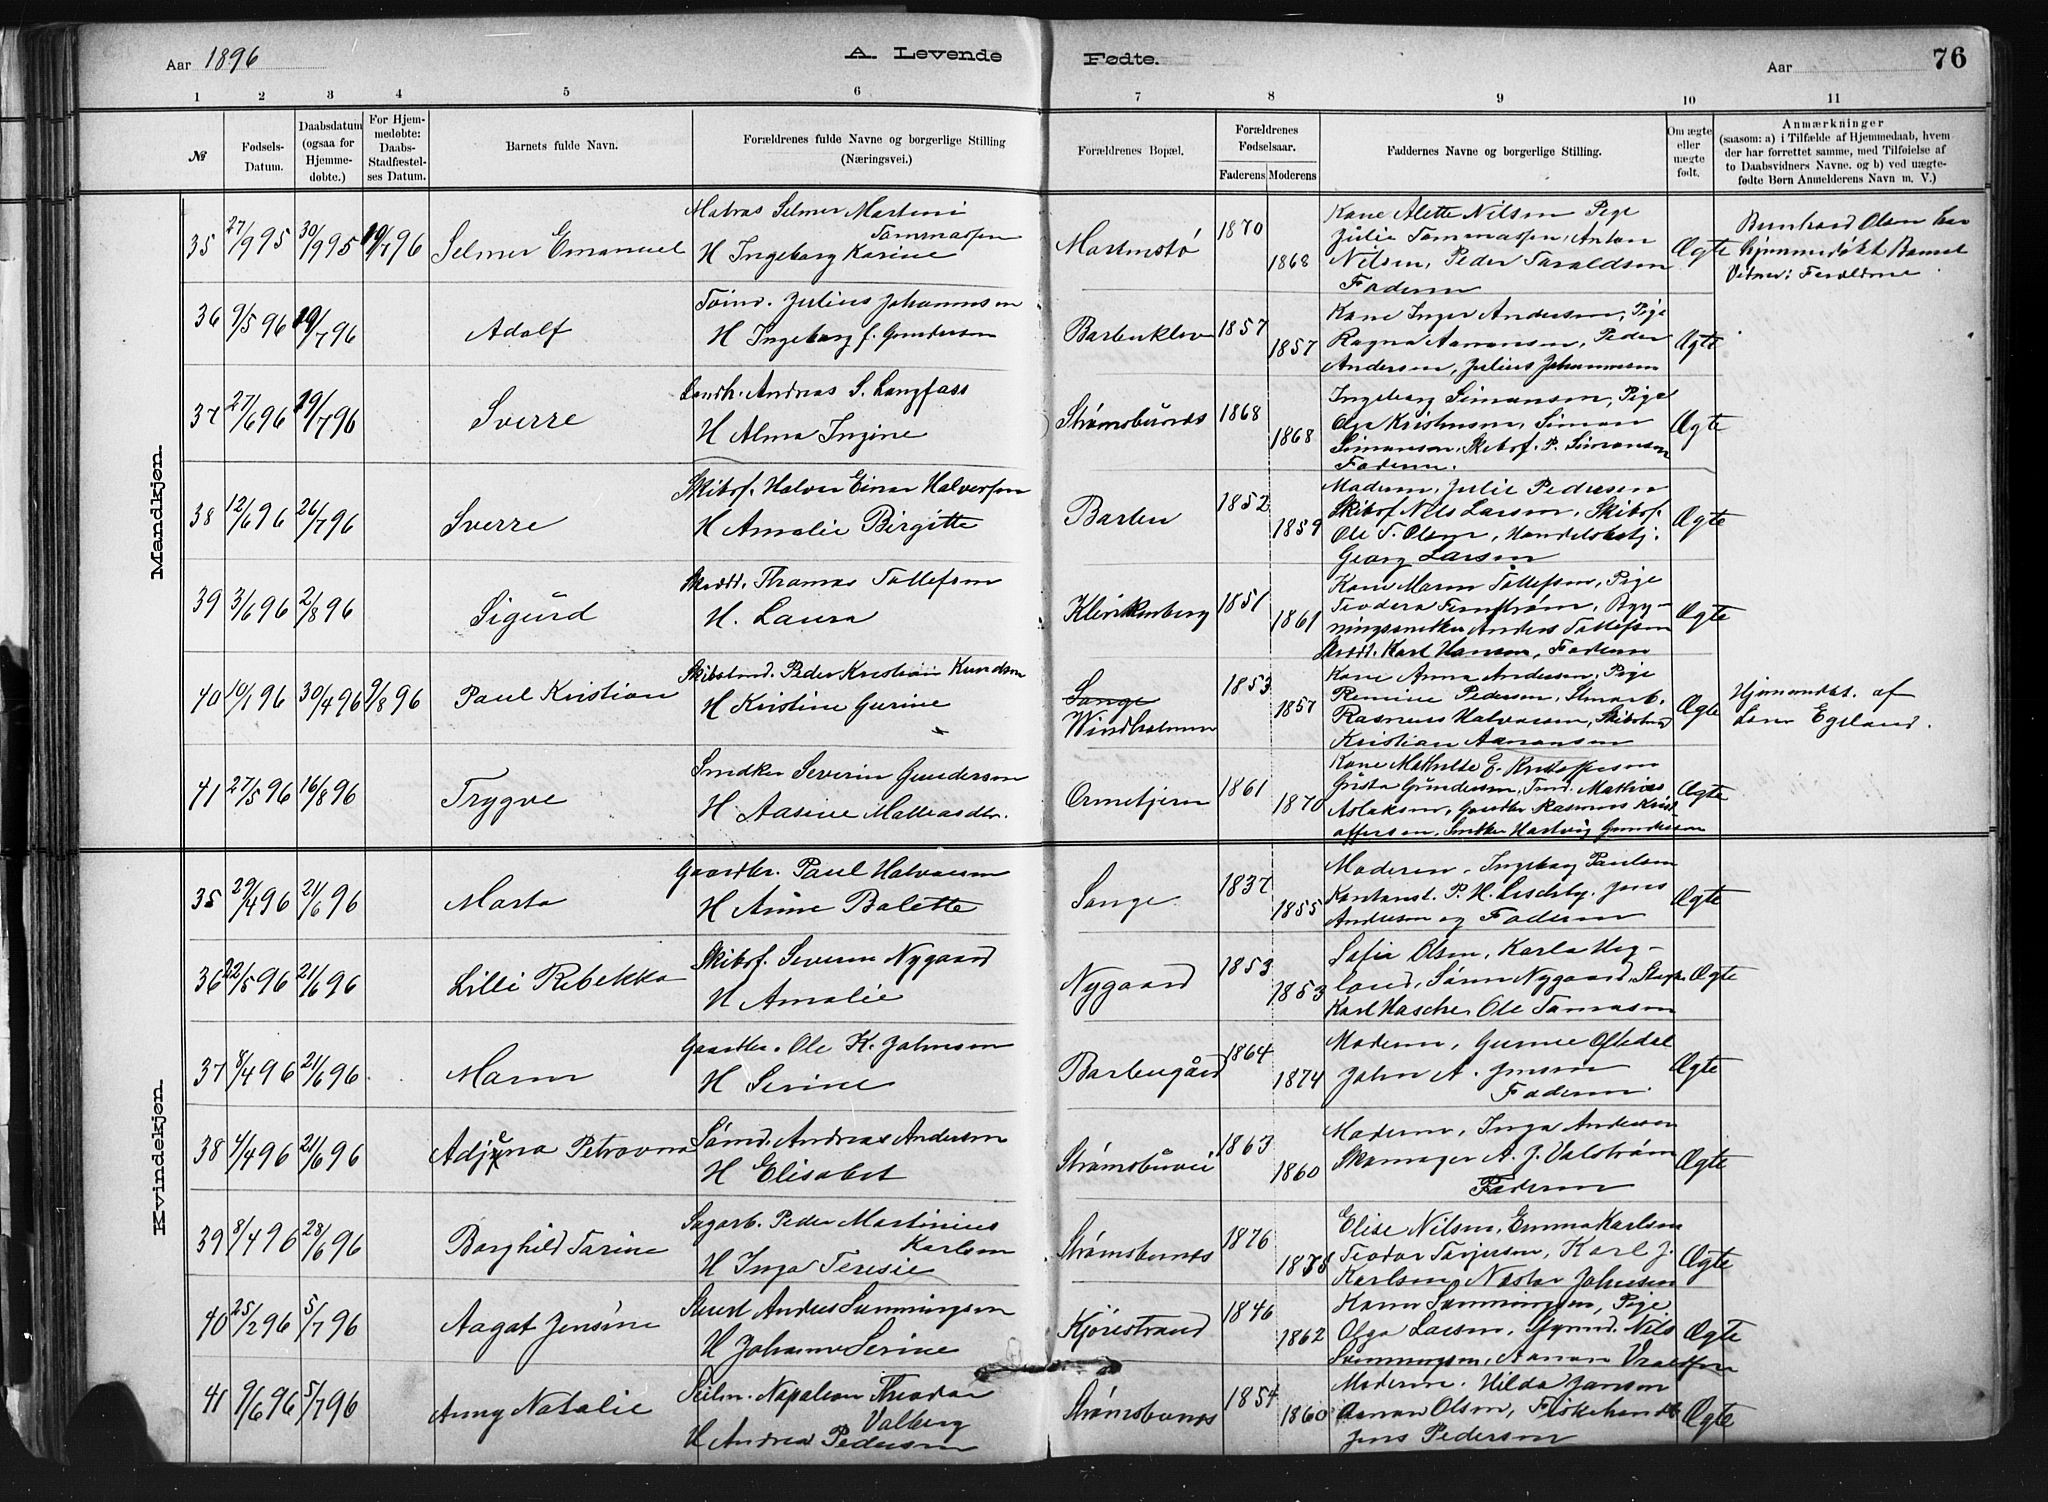 Aar 1896
A. Levende Fødte.
Aar
76
1 2 3 4 5 6 7 8 9 10 11
№
Fødsels-Datum.
Daabsdatum (ogsaa for Hjemmedøbte.)
For Hjemmedøbte: Daabs-Stadfæstelses Datum.
Barnets fulde Navn.
Forældrenes fulde Navne og borgerlige Stilling (Næringsvei.)
Forældrenes Bopæl.
Forældrenes Fødselsaar.
Faderens Moderens
Faddernes Navne og borgerlige Stilling.
Om ægte eller uægte født.
Anmærkninger (saasom: a) i Tilfælde af Hjemmedaab, hvem der har forrettet samme, med Tilføielse af to Daabsvidners Navne, og b) ved uægtefødte Børn Anmelderens Navn m. V.)
Mandkjøn.
35 27/9 95 30/9 95 19/7 96 Selmer Emanuel
Matros Selmer Martini Tommassen
H Ingeborg Karine
1870 1868
Kone Alette Nilsen Pige
Julie Tommassen, Anton
Nilsen, Peder Taraldsen
Faderen
Ægte
Bernhard Olsen har
hjemmedøbt Barnet
36 9/5 96 19/7 96 Adolf
Julius Johannesen
H Ingeborg f. Gundersen
Barbuklev 1857 1857
Kone Inger Andersen, Pige
Ragna Aanonsen, Peder
Andersen, Julius Johannesen
Ægte
37 27/6 96 19/7 96 Sverre
Landh. Andreas S. Langfass
H Alma Ingine
Strømsbunes 1868 1868
Ingeborg Simonsen, Pige
Olga Kristensen, Simon
Simonsen, Skibsf. P. Simonsen
Faderen.
Ægte
38 12/6 96 26/7 96 Sverre
Skibsf. Halvor Einar Halvorsen
H Amalie Birgitte
Barbu 1852 1859
Moderen, Julie Pedersen
Skibsf Nils Larsen, Skibsf.
Ole T. Olsen, Handelsbetj.
Georg Larsen
Ægte
39 3/6 96 2/8 96 Sigurd
Skrædd. Thomas Tollefsen
H. Laura
Klinkenberg 1851 1861
Kone Maren Tollefsen, Pige
Anders Tollefsen
Skrædd. Karl Hansen, Faderen
Ægte
40 10/1 96 30/4 96 9/8 96 Paul Kristian
Peder Kristian Knudsen
H Kristine Gurine
Songe
Windholmen 1853 1857
Kone Anna Andersen, Pige
Remine Pedersen,
Rasmus Halvorsen,
Kristian Aanonsen
Ægte
Hjemmedøbt. af
Lena Egeland.
41 27/5 96 16/8 96 Trygve
Snedker Severin Gundersen
H Aasine
1861 1870
Kone Mathilde E. Kristoffersen
Gusta Gundersen, Mathias
Aslaksen, Gaardbr Rasmus Krist
offersen, Hartvig Gundersen
Ægte
Kvindekjøn.
35 29/4 96 21/6 96 Marta
Gaardbr. Paul Halvorsen
H Anne Bolette
Songe. 1837 1855
Moderen, Ingeborg Paulsen
Jens
Andersen og Faderen
Ægte
36 22/5 96 21/6 96 Lilli Rebekka
Skibsf. Severin Nygaard
H Amalie
Nygaard 1853 1853
Sofie Olsen, Karla Heg-
land, Søren Nygaard,
Ole Tomasen
Ægte
37 8/4 96 21/6 96 Maren
Gaardbr. Ole K. Johnsen
H Serine
Barbugård 1864 1874
Moderen, Gunnie Oftedal
John A. Jensen
Faderen
Ægte
38 4/4 96 21/6 96 Petrovna
Sømd. Andreas Andersen
H Elisabet
Strømsbuvei 1863 1860
Moderen, Inga Andersen
Skomager A. J. Valstrøm
Faderen
Ægte
39 8/4 96 28/6 96 Borghild Tarine
Sagarb. Peder Martinius Karlsen
H Inga Teresie
Strømsbunes 1876 1878
Elise Nilsen, Emma Karlsen
Teodor Terjesen, Karl J.
Karlsen, Johnsen
Ægte
40 25/2 96 5/7 96 Aagot Jensine
Anders Sunningsen
H Johanne Serine
Kjørestrand 1846 1862
Pige
Olga Larsen, Nils
Ægte
41 9/6 96 5/7 96 Anny Natalie
Seilm. Napoleon Theodor Valberg
H Andrea Pedersen
Strømsbunes 1854 1860
Moderen. Hilda Jansen
Aanon Olsen, Fiskehandl.
Jens Pedersen
Ægte